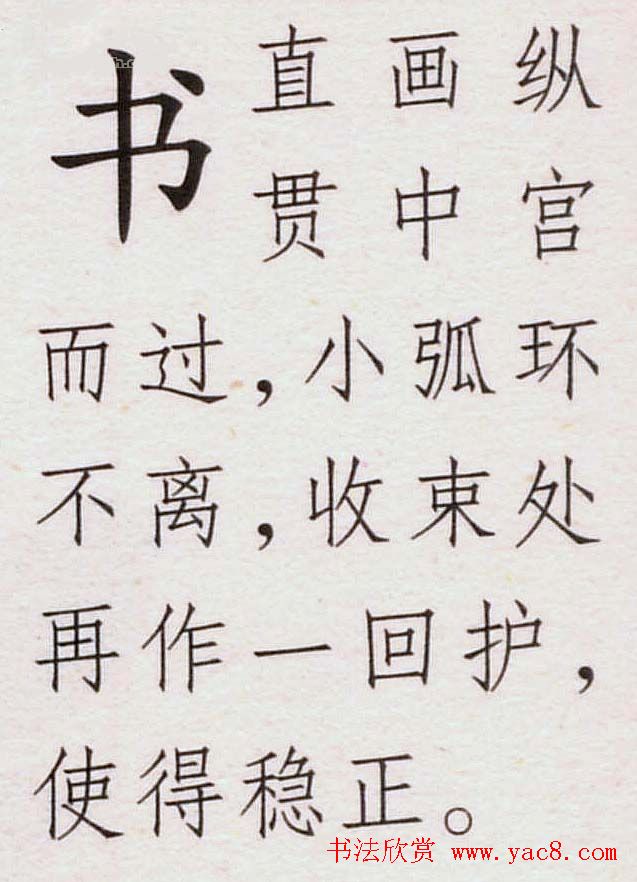 书
直画纵
贯中宫
而过,小弧环
不离,收束处
再作一回护,
使得稳正。
书法欣赏 www.yac8.com